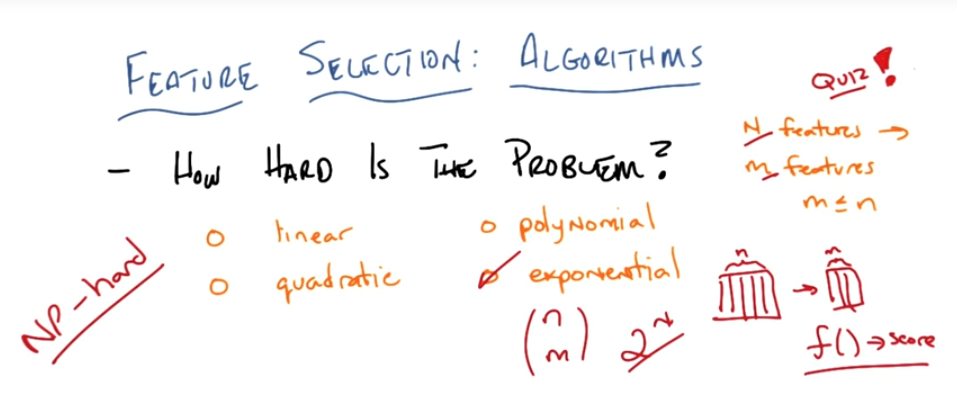 FEATURE SELECTION: ALGORITHMS
QUIZ!
N features →
m features
m ≤ n
- HOW HARD IS THE PROBLEM?
○ linear
○ polynomial
○ quadratic
○ exponential
NP-hard
(n m) 2^n
n → m
f() → score